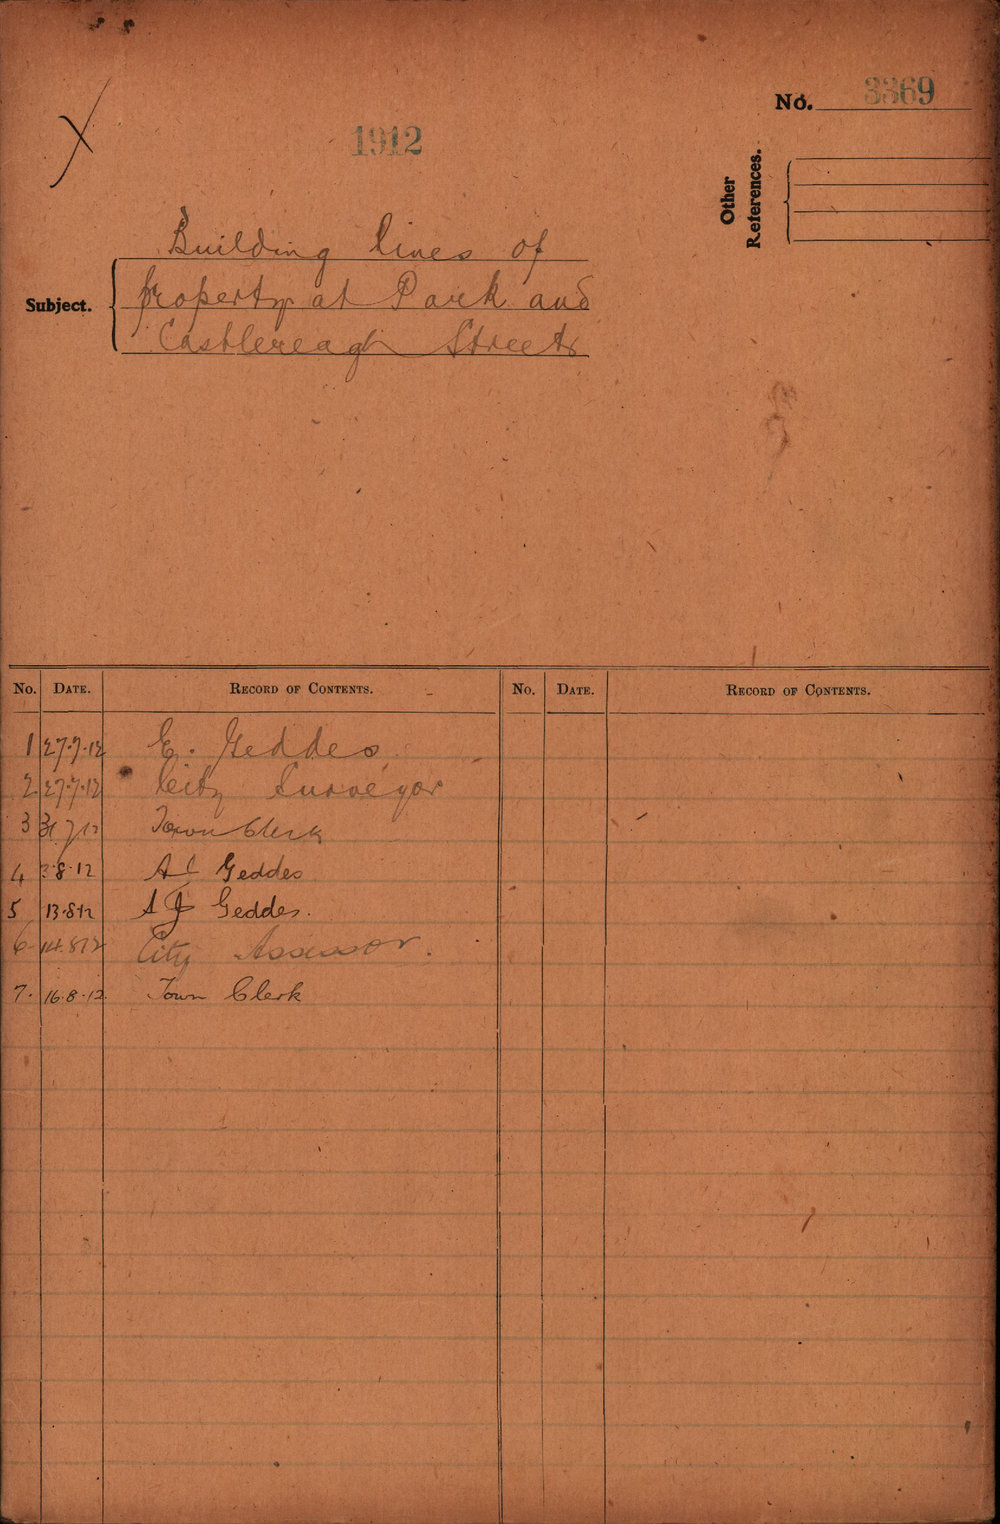 No. 3369
1912
Other
References.
Subject.
Building lines of
property at Park and
Castlereagh Streets
No. DATE. RECORD OF CONTENTS. No. DATE. RECORD OF CONTENTS.
1 27.7.12 E. Geddes
2 27.7.12 City Surveyor
3 31 7 12 Town Clerk
4 .8.12 A C Geddes
5 13.8.12 A J Geddes.
6 14.8.12 City Assessor.
7. 16.8.12. Town Clerk